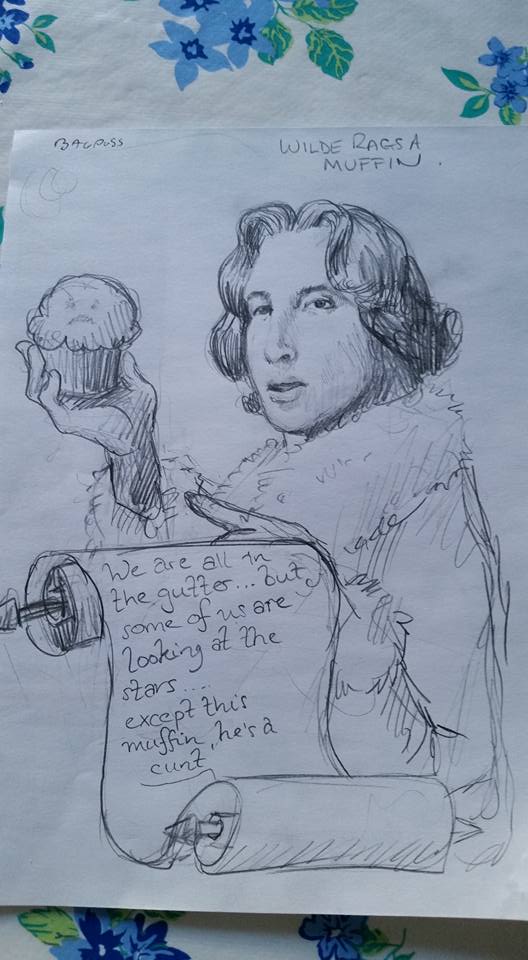 WILDE RAGS A
MUFFIN.
We are all in
the gutter... but
some of us are
looking at the
stars....
except this
muffin, he's a
cunt